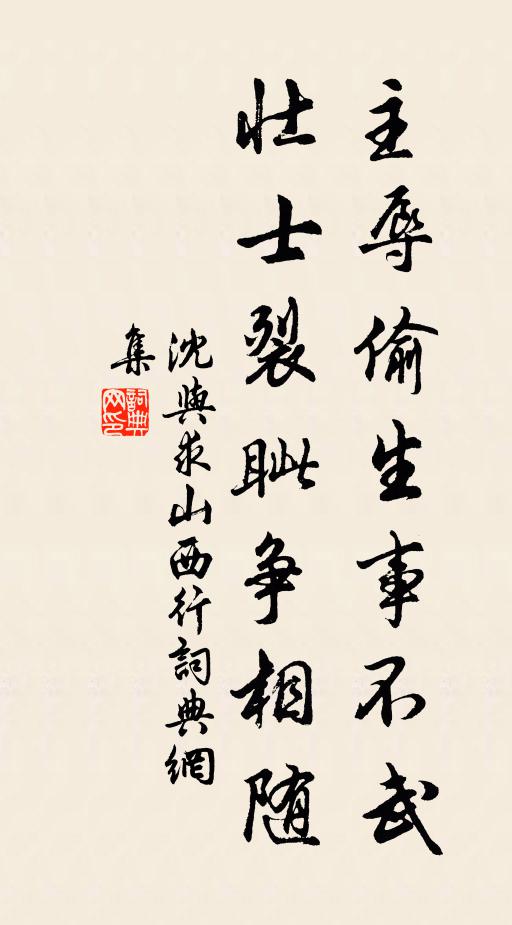 主辱偷生事不武
壮士裂眦争相随
沈與求山西行詞典網
集
詞典
网印